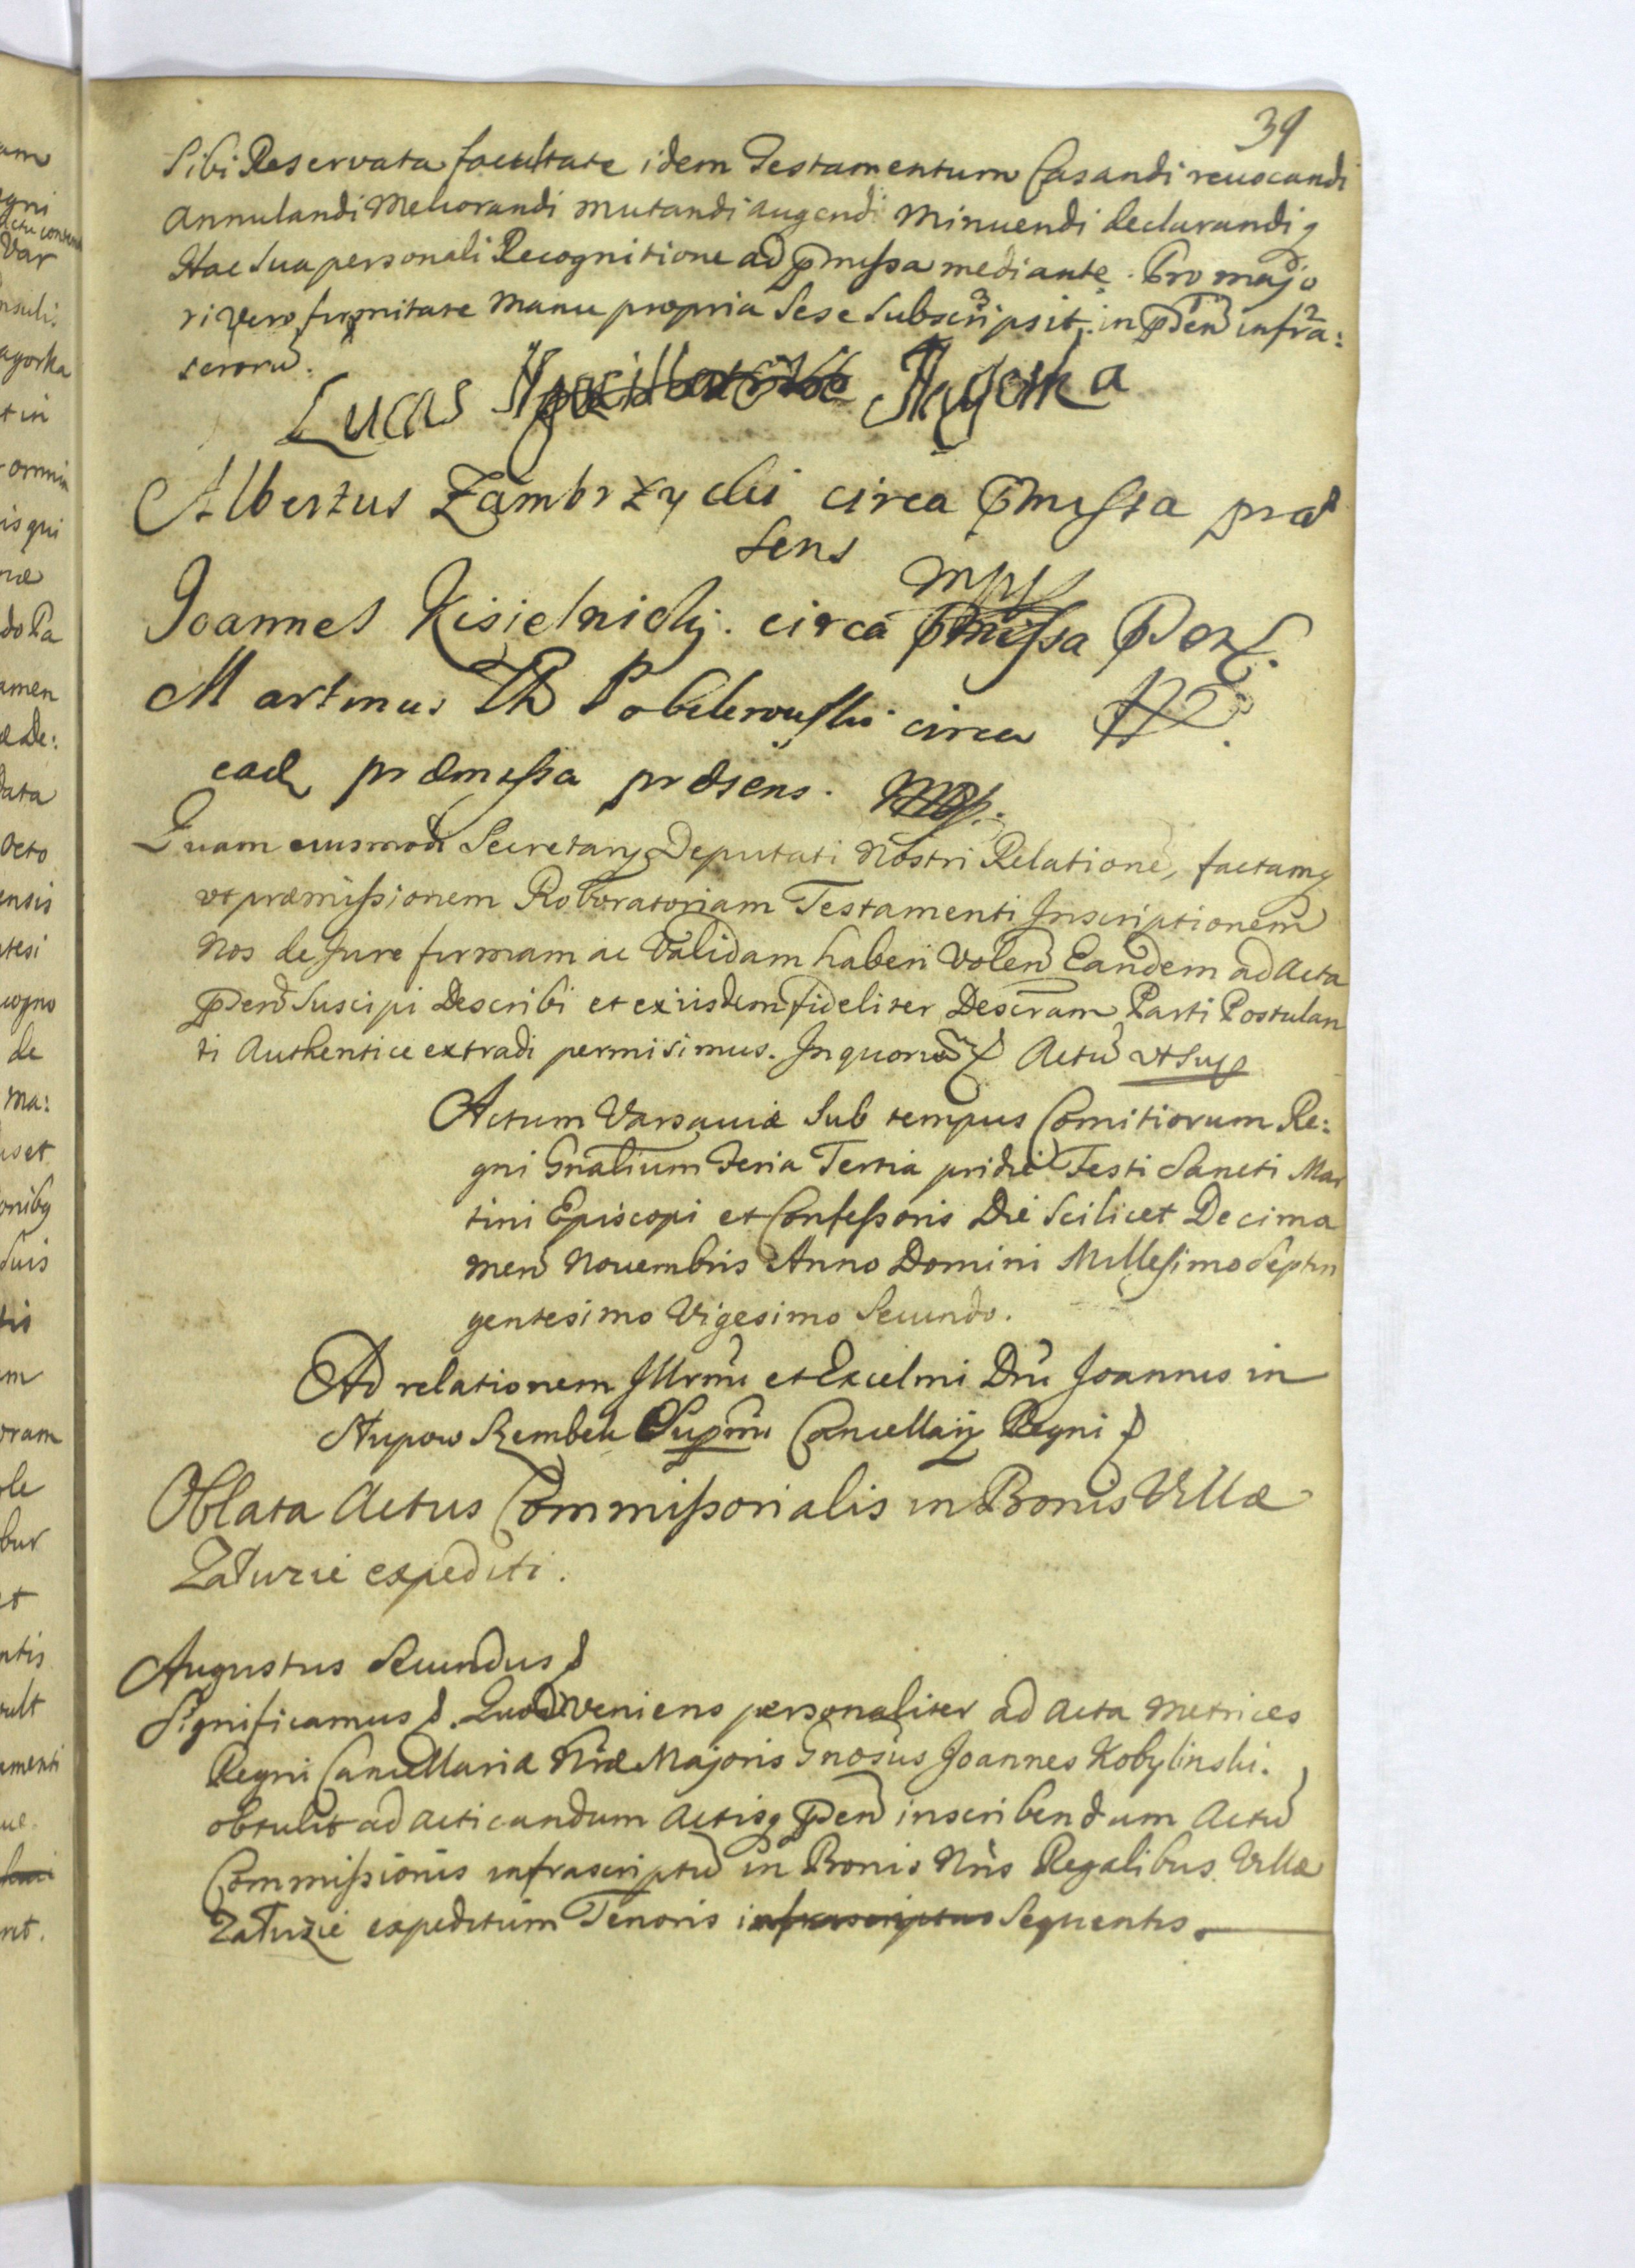 39
Sibi Reservata facultate idem Testamentum Casandi reuocandi
Annulandi Meliorandi mutandi augendi Minuendi declarandiq
Hac Sua personali Recognitione ad pmissa mediante. Pro majo
ri vero firmitate Manu propria Sese Subscripsit in pden infra:
scrorū.
Lucas Nagorka
Albertus Zambrzycki circa pmissa præ
sens
mpp
Joannes Kisielnicki. circa pmissa pdens.
Martinus circa
eadē præmissa præsens. Mpp.
Quam eiusmodi Secretary Deputati Nostri Relationē, factamq
ut præmissionem Roboratoriam Testamenti Inscriptionem
Nos de Jure firmam ac Validam haberi Volen Eandem ad Acta
pden Suscipi Describi et exiisdem fideliter Descram Parti Postulan
ti Authentice extradi permisimus. In quorū Actū ut Sup
Actum Varsauiæ Sub tempus Comitiorum Re:
gni Gnalium Feria Tertia pridie Festi Sancti Mar
tini Episcopi et Confessoris Die Scilicet Decima
Men Nouembris Anno Domini Millesimo Septin
gentesimo Vigesimo Secundo.
Ad relationem Illrmi et Excelmi Dni Joannis in
Słupow Szembek Supmi Cancellarij Regni
Oblata Actus Commissorialis in Bonis Villæ
Załuzie expediti.
Augustus Secundus
Significamus. Quod Veniens personaliter ad Acta Metrices
Regni Cancellariæ Nræ Majoris Gnosus Joannes Kobylinski.
obtulit ad acticandum Actisq pden inscribendum Actū
Commissionis infrascriptū in Bonis Nris Regalibus Villæ
Załuzie expeditum Tenoris infrascriptus Sequentis.